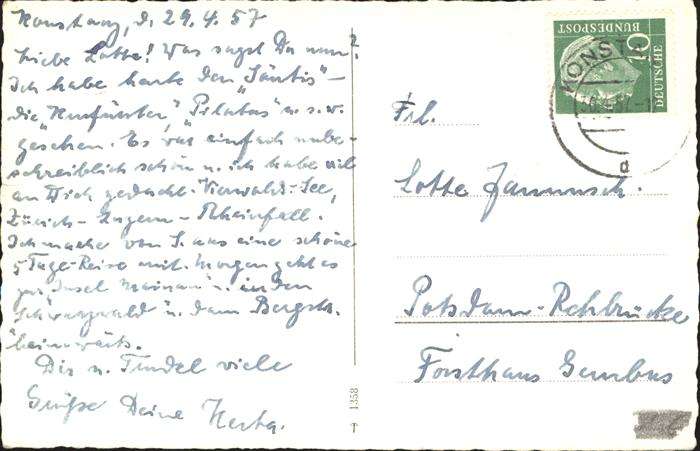 Konstanz, d. 29.4.57
Liebe Lotte! Was sagst Du nun?
Ich habe heute den "Säntis" –
die "Kurfürsten," "Pilatus" u. s. w.
gesehen. Es war einfach unbe-
schreiblich schön u. ich habe viel
an Dich gedacht. Vierwald-See,
Zürich – Luzern – Rheinfall.
Ich mache von S. aus eine schöne
5 Tage-Reise mit. Morgen geht es
zur "Insel Mainau" u. in den
Schwarzwald u. dann Bergstr.
heimwärts.
Dir u. viele
Grüße Deine Herta.
1358
DEUTSCHE
BUNDESPOST
10
KONST
a
Frl.
Lotte
Potsdam-Rehbrücke
Forsthaus